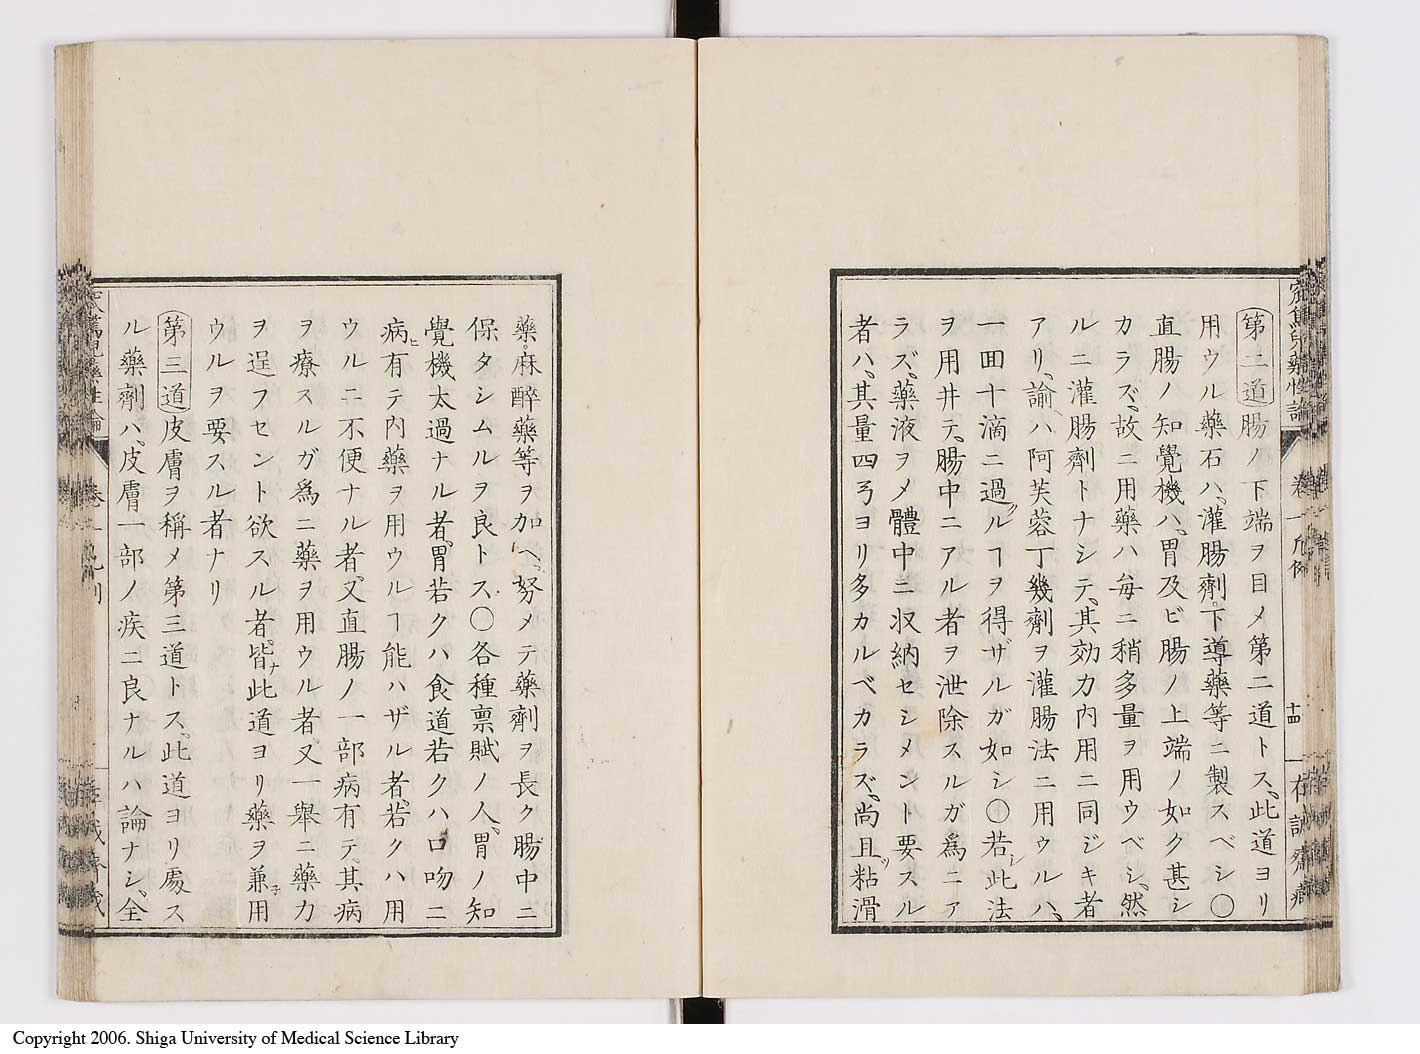 窊篤児藥性論
卷一 凡例
十四
存誠齋藏
第二道腸ノ下端ヲ目メ第二道トス、此道ヨリ
用ウル藥石ハ、灌腸劑。下導藥等ニ製スベシ〇
直腸ノ知覺機ハ、胃及ビ腸ノ上端ノ如ク甚シ
カラズ、故ニ用藥ハ毎ニ稍多量ヲ用ウベシ、然
ルニ灌腸劑トナシテ、其効力内用ニ同ジキ者
アリ、諭ハ阿芙蓉丁幾劑ヲ灌腸法ニ用ウルハ、
一囬十滴ニ過ルヿヲ得ザルガ如シ〇若シ此法
ヲ用井テ、腸中ニアル者ヲ泄除スルガ為ニア
ラズ、藥液ヲメ體中ニ収納セシメント要スル
者ハ、其量四弓ヨリ多カルベカラズ、尚且ツ粘滑
藥。麻醉藥等ヲ加ヘ、努メテ藥劑ヲ長ク腸中ニ
保タシムルヲ良トス、〇各種禀賦ノ人、胃ノ知
覺機太過ナル者、胃若クハ食道若クハ口吻ニ
病ヒ有テ内藥ヲ用ウルヿ能ハザル者、若クハ用
ウルニ不便ナル者、又直腸ノ一部病有テ、其病
ヲ療スルガ為ニ藥ヲ用ウル者、又一擧ニ藥力
ヲ逞フセント欲スル者、皆ナ此道ヨリ藥ヲ兼子用
ウルヲ要スル者ナリ
第三道皮膚ヲ稱メ第三道トス、此道ヨリ處ス
ル藥劑ハ、皮膚一部ノ疾ニ良ナルハ論ナシ、全
Copyright 2006. Shiga University of Medical Science Library